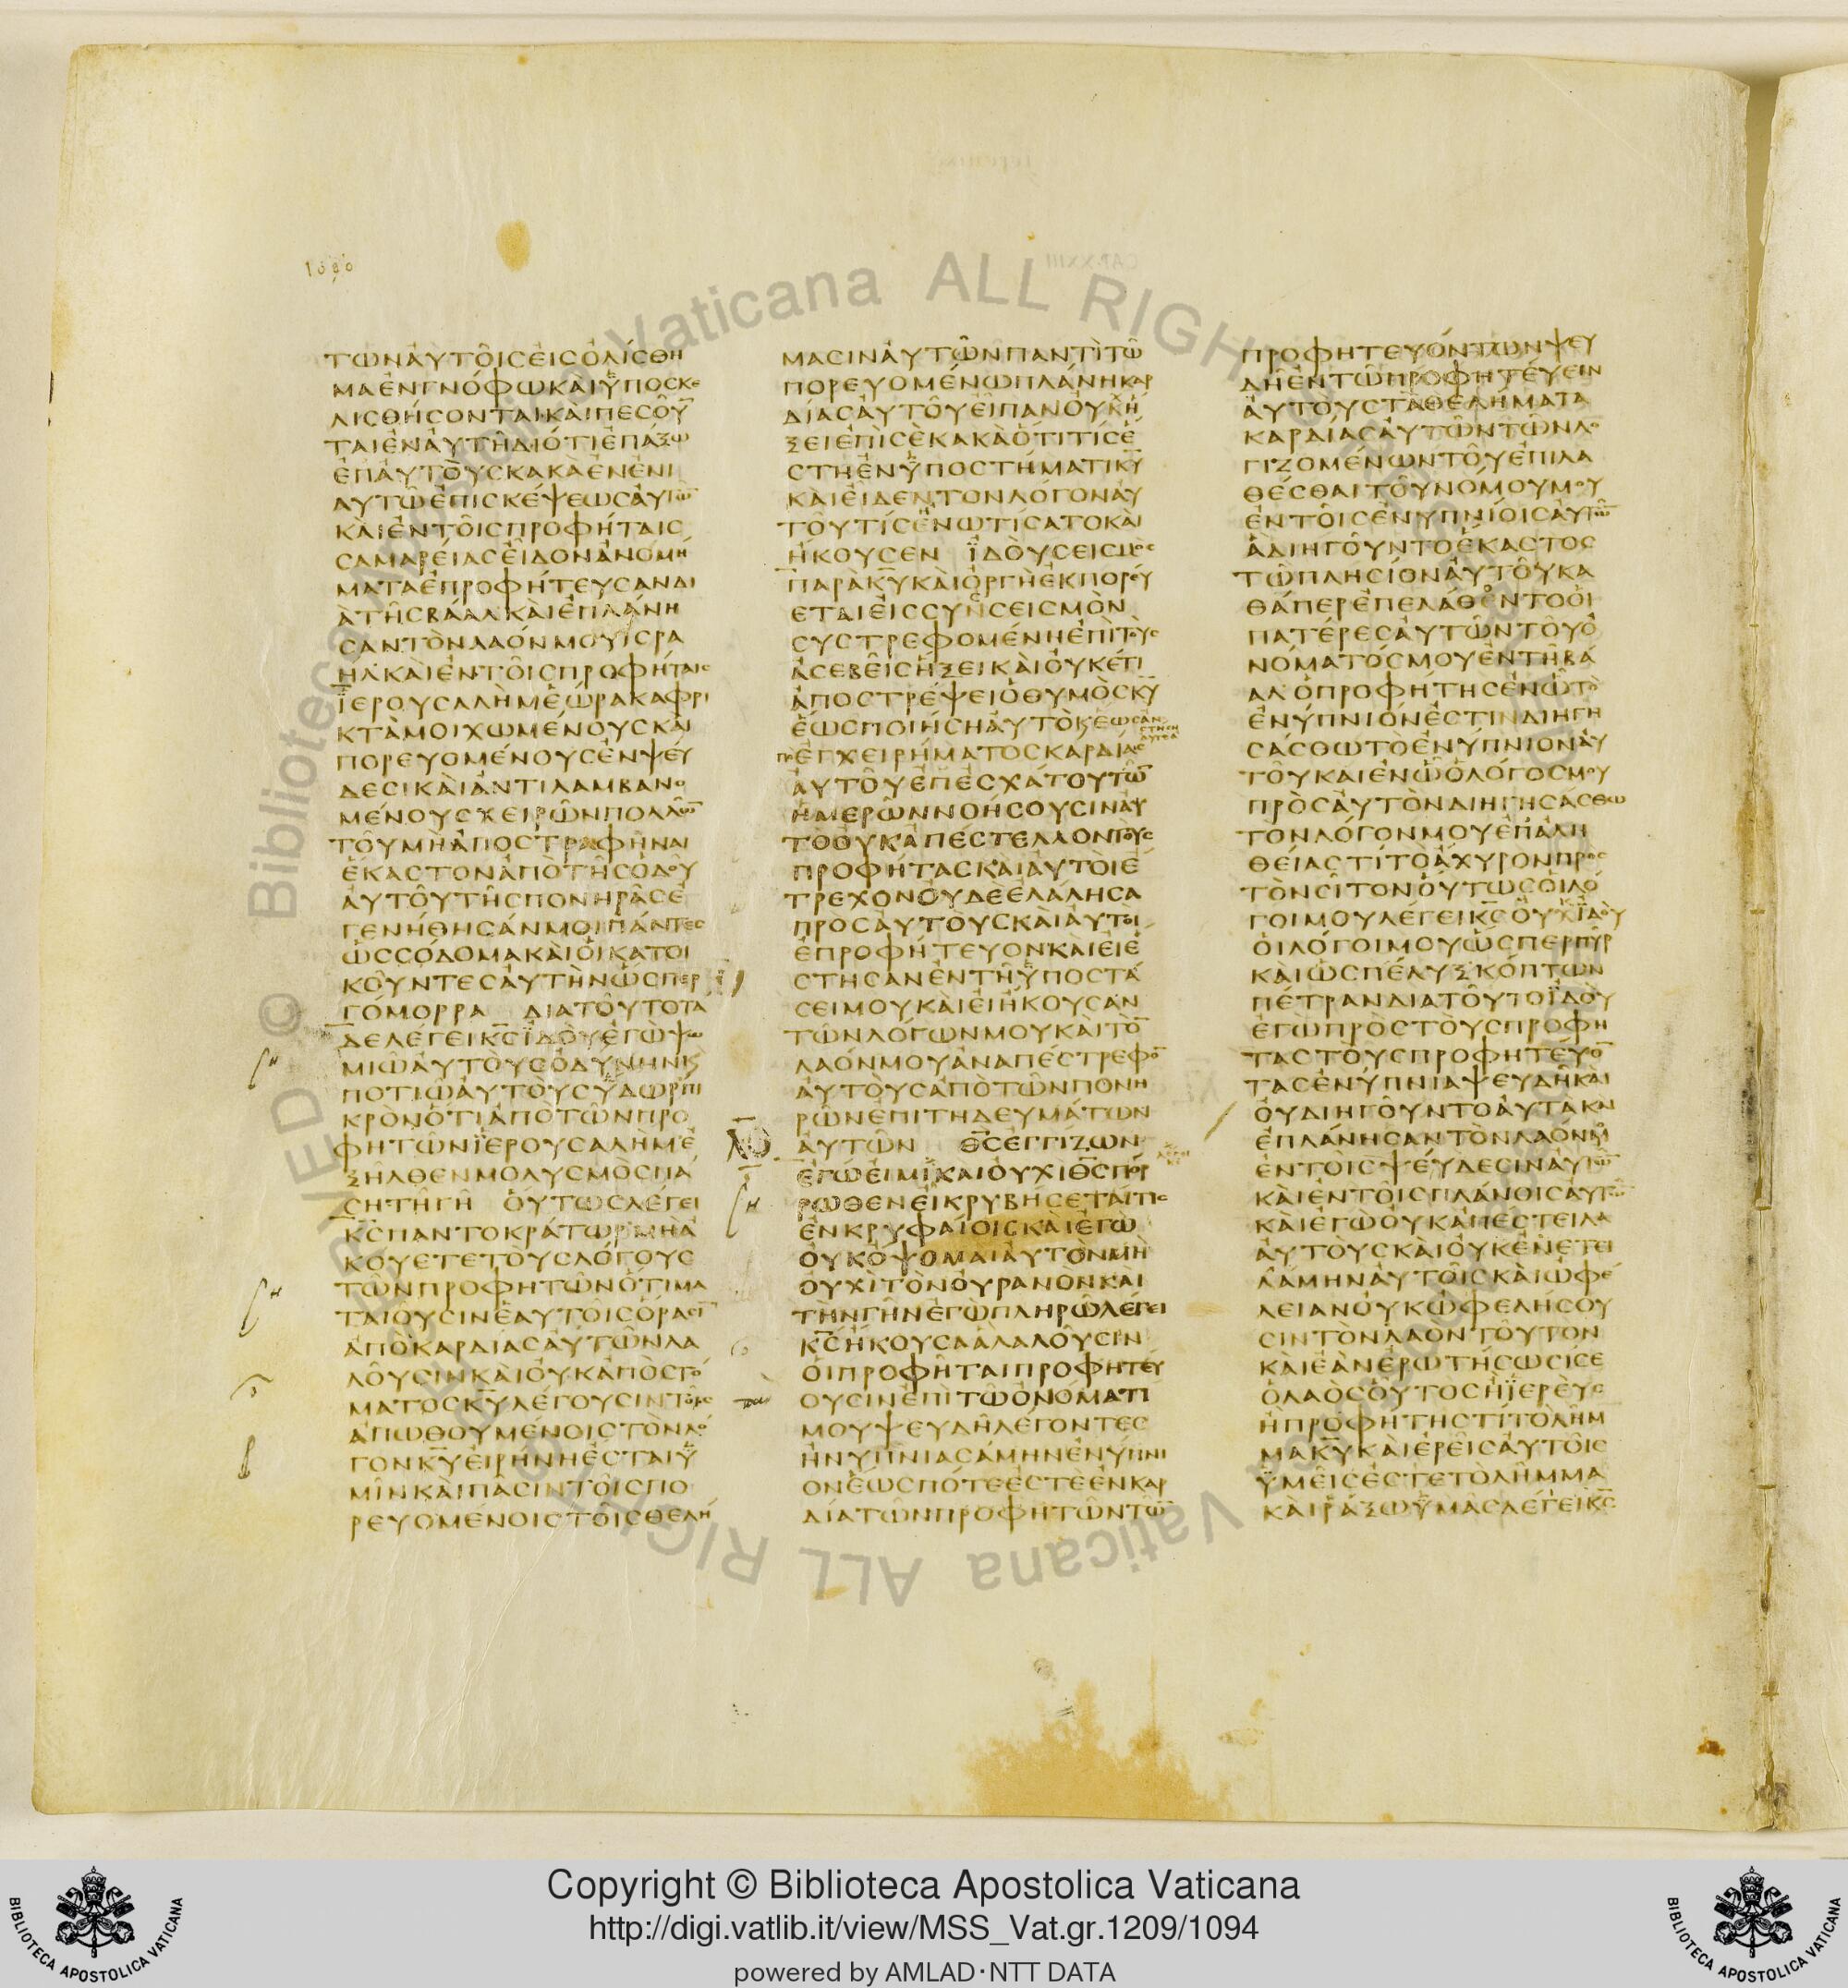 1090
ΤΩΝΑΥΤΟΙϹΕΙϹΟΛΙϹΘΗ
ΜΑΕΝΓΝΟΦΩΚΑΙΫΠΟϹΚΕ
ΛΙϹΘΗϹΟΝΤΑΙΚΑΙΠΕϹΟΥ̅
ΤΑΙΕΝΑΥΤΗΔΙΟΤΙΕΠΑΞΩ
ΕΠΑΥΤΟΥϹΚΑΚΑΕΝΕΝΙ
ΑΥΤΩΕΠΙϹΚΕΨΕΩϹΑΥΤΩ̅
ΚΑΙΕΝΤΟΙϹΠΡΟΦΗΤΑΙϹ
ϹΑΜΑΡΕΙΑϹΕΙΔΟΝΑΝΟΜΗ
ΜΑΤΑΕΠΡΟΦΗΤΕΥϹΑΝΔΙ
ΑΤΗϹΒΑΑΛΚΑΙΕΠΛΑΝΗ
ϹΑΝΤΟΝΛΑΟΝΜΟΥΙϹΡΑ
ΗΛΚΑΙΕΝΤΟΙϹΠΡΟΦΗΤΑΙϹ
ΪΕΡΟΥϹΑΛΗΜΕΩΡΑΚΑΦΡΙ
ΚΤΑΜΟΙΧΩΜΕΝΟΥϹΚΑΙ
ΠΟΡΕΥΟΜΕΝΟΥϹΕΝΨΕΥ
ΔΕϹΙΚΑΙΑΝΤΙΛΑΜΒΑΝΟ
ΜΕΝΟΥϹΧΕΙΡΩΝΠΟΛΛΩ̅
ΤΟΥΜΗΑΠΟϹΤΡΑΦΗΝΑΙ
ΕΚΑϹΤΟΝΑΠΟΤΗϹΟΔΟΥ
ΑΥΤΟΥΤΗϹΠΟΝΗΡΑϹΕ
ΓΕΝΗΘΗϹΑΝΜΟΙΠΑΝΤΕϹ
ΩϹϹΟΔΟΜΑΚΑΙΟΙΚΑΤΟΙ
ΚΟΥΝΤΕϹΑΥΤΗΝΩϹΠΕΡ
ΓΟΜΟΡΡΑ ΔΙΑΤΟΥΤΟΤΑ
ΔΕΛΕΓΕΙΚ̅ϹΪΔΟΥΕΓΩΨΩ
ΜΙΩΑΥΤΟΥϹΟΔΥΝΗΝΚ
ΠΟΤΙΩΑΥΤΟΥϹΫΔΩΡΠΙ
ΚΡΟΝΟΤΙΑΠΟΤΩΝΠΡΟ
ΦΗΤΩΝΪΕΡΟΥϹΑΛΗΜΕ
ΞΗΛΘΕΝΜΟΛΥϹΜΟϹΠΑ
ϹΗΤΗΓΗ ΟΥΤΩϹΛΕΓΕΙ
Κ̅ϹΠΑΝΤΟΚΡΑΤΩΡΜΗΑ
ΚΟΥΕΤΕΤΟΥϹΛΟΓΟΥϹ
ΤΩΝΠΡΟΦΗΤΩΝΟΤΙΜΑ
ΤΑΙΟΥϹΙΝΕΑΥΤΟΙϹΟΡΑϹΙ̅
ΑΠΟΚΑΡΔΙΑϹΑΥΤΩΝΛΑ
ΛΟΥϹΙΝΚΑΙΟΥΚΑΠΟϹΤΟ
ΜΑΤΟϹΚ̅ΥΛΕΓΟΥϹΙΝΤΟΙϹ
ΑΠΩΘΟΥΜΕΝΟΙϹΤΟΝΛΟ
ΓΟΝΚ̅ΥΕΙΡΗΝΗΕϹΤΑΙΫ
ΜΙΝΚΑΙΠΑϹΙΝΤΟΙϹΠΟ
ΡΕΥΟΜΕΝΟΙϹΤΟΙϹΘΕΛΗ
ΜΑϹΙΝΑΥΤΩΝΠΑΝΤΙΤΩ
ΠΟΡΕΥΟΜΕΝΩΠΛΑΝΗΚΑΡ
ΔΙΑϹΑΥΤΟΥΕΙΠΑΝΟΥΧΗ
ΞΕΙΕΠΙϹΕΚΑΚΑΟΤΙΤΙϹΕ
ϹΤΗΕΝΫΠΟϹΤΗΜΑΤΙΚ̅Υ
ΚΑΙΕΙΔΕΝΤΟΝΛΟΓΟΝΑΥ
ΤΟΥΤΙϹΕΝΩΤΙϹΑΤΟΚΑΙ
ΗΚΟΥϹΕΝ ΪΔΟΥϹΕΙϹΜΟϹ
ΠΑΡΑΚ̅ΥΚΑΙΟΡΓΗΕΚΠΟΡΕΥ
ΕΤΑΙΕΙϹϹΥΝϹΕΙϹΜΟΝ
ϹΥϹΤΡΕΦΟΜΕΝΗΕΠΙΤΟΥϹ
ΑϹΕΒΕΙϹΗΞΕΙΚΑΙΟΥΚΕΤΙ
ΑΠΟϹΤΡΕΨΕΙΟΘΥΜΟϹΚ̅Υ
ΕΩϹΠΟΙΗϹΗΑΥΤΟΚΕΩϹΑΝ
ϹΤΗϹΗ
ΑΥΤΟΑ
ΠΟΕΓΧΕΙΡΗΜΑΤΟϹΚΑΡΔΙΑϹ
ΑΥΤΟΥΕΠΕϹΧΑΤΟΥΤΩ̅
ΗΜΕΡΩΝΝΟΗϹΟΥϹΙΝΑΥ
ΤΟΟΥΚΑΠΕϹΤΕΛΛΟΝΤΟΥϹ
ΠΡΟΦΗΤΑϹΚΑΙΑΥΤΟΙΕ
ΤΡΕΧΟΝΟΥΔΕΕΛΑΛΗϹΑ
ΠΡΟϹΑΥΤΟΥϹΚΑΙΑΥΤΟΙ
ΕΠΡΟΦΗΤΕΥΟΝΚΑΙΕΙΕ
ϹΤΗϹΑΝΕΝΤΗΫΠΟϹΤΑ
ϹΕΙΜΟΥΚΑΙΕΙΗΚΟΥϹΑΝ
ΤΩΝΛΟΓΩΝΜΟΥΚΑΙΤΟ̅
ΛΑΟΝΜΟΥΑΝΑΠΕϹΤΡΕΦΟ̅
ΑΥΤΟΥϹΑΠΟΤΩΝΠΟΝΗ
ΡΩΝΕΠΙΤΗΔΕΥΜΑΤΩΝ
ΑΥΤΩΝ Θ̅ϹΕΓΓΙΖΩΝ
ΕΓΩΕΙΜΙΚΑΙΟΥΧΙΘ̅ϹΠΟΡ
ΡΩΘΕΝΕΙΚΡΥΒΗϹΕΤΑΙΤΙϹ
ΕΝΚΡΥΦΑΙΟΙϹΚΑΙΕΓΩ
ΟΥΚΟΨΟΜΑΙΑΥΤΟΝΜΗ
ΟΥΧΙΤΟΝΟΥΡΑΝΟΝΚΑΙ
ΤΗΝΓΗΝΕΓΩΠΛΗΡΩΛΕΓΕΙ
Κ̅ϹΗΚΟΥϹΑΑΛΑΛΟΥϹΙΝ
ΟΙΠΡΟΦΗΤΑΙΠΡΟΦΗΤΕΥ
ΟΥϹΙΝΕΠΙΤΩΟΝΟΜΑΤΙ
ΜΟΥΨΕΥΔΗΛΕΓΟΝΤΕϹ
ΗΝΥΠΝΙΑϹΑΜΗΝΕΝΥΠΝΙ
ΟΝΕΩϹΠΟΤΕΕϹΤΕΕΝΚΑΡ
ΔΙΑΤΩΝΠΡΟΦΗΤΩΝΤΩ̅
ΠΡΟΦΗΤΕΥΟΝΤΩΝΨΕΥ
ΔΗΕΝΤΩΠΡΟΦΗΤΕΥΕΙΝ
ΑΥΤΟΥϹΤΑΘΕΛΗΜΑΤΑ
ΚΑΡΔΙΑϹΑΥΤΩΝΤΩΝΛΟ
ΓΙΖΟΜΕΝΩΝΤΟΥΕΠΙΛΑ
ΘΕϹΘΑΙΤΟΥΝΟΜΟΥΜΟΥ
ΕΝΤΟΙϹΕΝΥΠΝΙΟΙϹΑΥΤΩ̅
ΑΔΙΗΓΟΥΝΤΟΕΚΑϹΤΟϹ
ΤΩΠΛΗϹΙΟΝΑΥΤΟΥΚΑ
ΘΑΠΕΡΕΠΕΛΑΘΕΝΤΟΟΙ
ΠΑΤΕΡΕϹΑΥΤΩΝΤΟΥΟ
ΝΟΜΑΤΟϹΜΟΥΕΝΤΗΒΑ
ΑΛΟΠΡΟΦΗΤΗϹΕΝΩΤΟ
ΕΝΥΠΝΙΟΝΕϹΤΙΝΔΙΗΓΗ
ϹΑϹΘΩΤΟΕΝΥΠΝΙΟΝΑΥ
ΤΟΥΚΑΙΕΝΩΟΛΟΓΟϹΜΟΥ
ΠΡΟϹΑΥΤΟΝΔΙΗΓΗϹΑϹΘΩ
ΤΟΝΛΟΓΟΝΜΟΥΕΠΑΛΗ
ΘΕΙΑϹΤΙΤΟΑΧΥΡΟΝΠΡΟϹ
ΤΟΝϹΙΤΟΝΟΥΤΩϹΟΙΛΟ
ΓΟΙΜΟΥΛΕΓΕΙΚ̅ϹΟΥΧΪΔΟΥ
ΟΙΛΟΓΟΙΜΟΥΩϹΠΕΡΠΥΡ
ΚΑΙΩϹΠΕΛΥΞΚΟΠΤΩΝ
ΠΕΤΡΑΝΔΙΑΤΟΥΤΟΪΔΟΥ
ΕΓΩΠΡΟϹΤΟΥϹΠΡΟΦΗ
ΤΑϹΤΟΥϹΠΡΟΦΗΤΕΥΟ̅
ΤΑϹΕΝΥΠΝΙΑΨΕΥΔΗΚΑΙ
ΟΥΔΙΗΓΟΥΝΤΟΑΥΤΑΚΑΙ
ΕΠΛΑΝΗϹΑΝΤΟΝΛΑΟΝΜΟΥ
ΕΝΤΟΙϹΨΕΥΔΕϹΙΝΑΥΤΩ̅
ΚΑΙΕΝΤΟΙϹΠΛΑΝΟΙϹΑΥΤΩ̅
ΚΑΙΕΓΩΟΥΚΑΠΕϹΤΕΙΛΑ
ΑΥΤΟΥϹΚΑΙΟΥΚΕΝΕΤΕΙ
ΛΑΜΗΝΑΥΤΟΙϹΚΑΙΩΦΕ
ΛΕΙΑΝΟΥΚΩΦΕΛΗϹΟΥ
ϹΙΝΤΟΝΛΑΟΝΤΟΥΤΟΝ
ΚΑΙΕΑΝΕΡΩΤΗϹΩϹΙϹΕ
ΟΛΑΟϹΟΥΤΟϹΗΪΕΡΕΥϹ
ΗΠΡΟΦΗΤΗϹΤΙΤΟΛΗΜ
ΜΑΚ̅ΥΚΑΙΕΡΕΙϹΑΥΤΟΙϹ
ΫΜΕΙϹΕϹΤΕΤΟΛΗΜΜΑ
ΚΑΙΡΑΞΩΫΜΑϹΛΕΓΕΙΚ̅Ϲ
Copyright © Biblioteca Apostolica Vaticana
http://digi.vatlib.it/view/MSS_Vat.gr.1209/1094
powered by AMLAD·NTT DATA
BIBLIOTECA APOSTOLICA VATICANA
BIBLIOTECA APOSTOLICA VATICANA